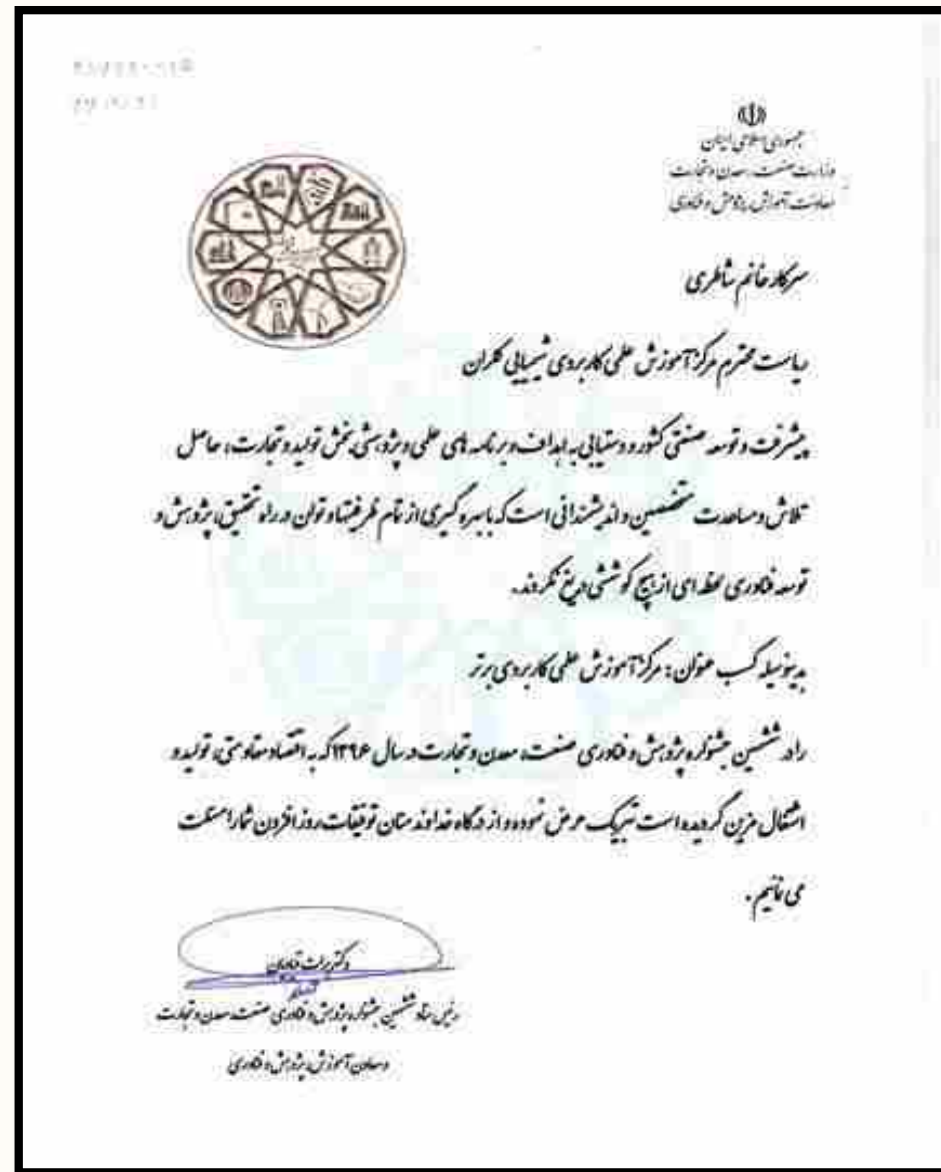 جمهوری اسلامی ایران
وزارت صنعت، معدن و تجارت
معاونت آموزش، پژوهش و فناوری
سرکار خانم شاطری
ریاست محترم مرکز آموزش علمی کاربردی شیمیایی کلران
پیشرفت و توسعه صنعتی کشور و دستیابی به اهداف و برنامه های علمی و پژوهشی بخش تولید و تجارت، حاصل
تلاش و مساعدت متخصصین و اندیشمندانی است که با بهره گیری از تمام ظرفیتها و توان در راه تحقیق، پژوهش و
توسعه فناوری لحظه ای از هیچ کوششی دریغ نکردند.
بدینوسیله کسب عنوان : مرکز آموزش علمی کاربردی برتر
را در ششمین جشنواره پژوهش و فناوری صنعت، معدن و تجارت در سال ۱۳۹۶ که به اقتصاد مقاومتی، تولید و
اشتغال مزین گردیده است تبریک عرض نموده و از درگاه خداوند منان توفیقات روز افزون شما را مسئلت
می نمائیم .
دکتر برات قنبری
رئیس ستاد ششمین جشنواره پژوهش و فناوری صنعت، معدن و تجارت
و معاون آموزش، پژوهش و فناوری